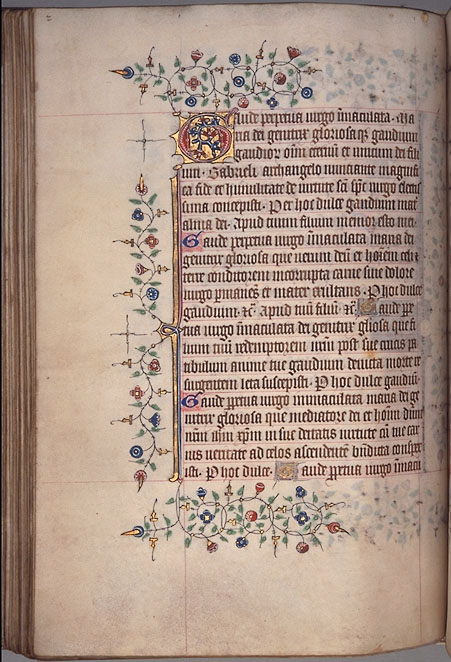 Gaude perpetua uirgo īmaculata. Ma
ria dei genitrix gloriosa q̄ gaudium
gaudior om̄ eternū et unicum dei fili
um. Gabrieli archangelo nunciante magnifi
ca fide et humilitate de uirtute sc̄i sp̄c uirgo electis
sima concepisti. Per hoc dulce gaudium mat̄
alma dei. apud tuum filium memor esto mei.
Gaude perpetua uirgo īmaculata maria dei
genitrix gloriosa que uerum deū et hoiem celi et
terre conditorem incorrupta carne sine dolore
uirgo p̄manēs et mater exultans. P hoc dulce
gaudium. ⁊c̄. apud tuū filiū. ⁊c̄ Gaude per
petua uirgo īmaculata dei genitrix gl̄iosa que fi
lium tuū redemptorem mūdi post sue crucis pa
tibulum anime tue gaudium deuicta morte re
surgentem leta suscepisti. P hoc dulce gaudiū.
Gaude p̄petua uirgo immaculata maria dei ge
nitrix gloriosa que mediatorē dei et hoīm dn̄m
nr̄m ihm̄ xp̄m in sue deitatis uirtute cū tue car
nis ueritate ad celos ascendentē bn̄dicta conspex
isti. P hoc dulce. Gaude p̄petua uirgo īmacu